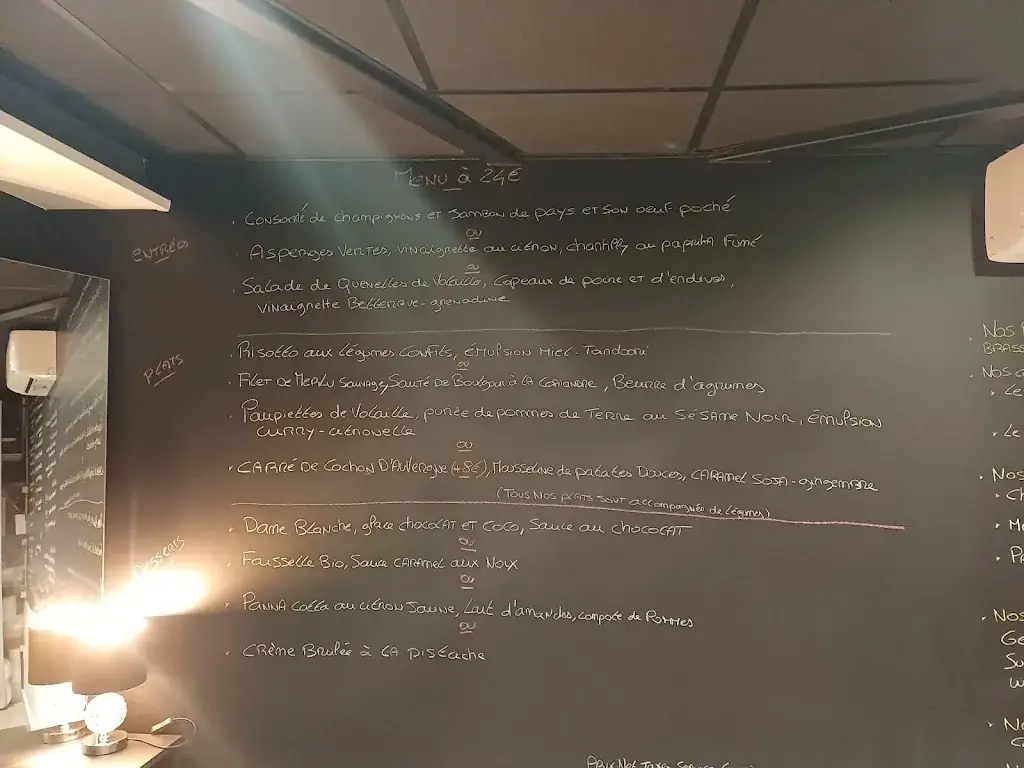 Menu à 24€
ENTRÉES
. Consommé de champignons et Jambon de pays et son oeuf poché
ou
. Asperges Vertes, vinaigrette au citron, chantilly au paprika Fumé
ou
. Salade de Quenelles de Volaille, Copeaux de poire et d'endives,
vinaigrette Betterave-grenadine
PLATS
. Risotto aux Légumes Confits, émulsion Miel-Tandoori
ou
. Filet de Merlu Sauvage, Sauté de Boulgour à la Coriandre, Beurre d'agrumes
. Paupiettes de Volaille, purée de pommes de Terre au Sésame Noir, émulsion
CURRY-citronelle
ou
. CARRÉ DE Cochon D'Auvergne (+8€), Mousseline de patates Douces, CARAMEL SOJA-gingembre
(Tous nos plats sont accompagnés de légumes)
Desserts
. Dame Blanche, glace chocolat et Coco, Sauce au chocolat
ou
. Faisselle Bio, Sauce CARAMEL aux Noix
ou
. Panna cotta au citron Jaune, Lait d'amandes, compote de Pommes
ou
. Crème Brulée à la pistache
Nos
BRASS
. Nos
. Le
. Le
. Nos
. Nos
. No
Prix Net Taxes Service